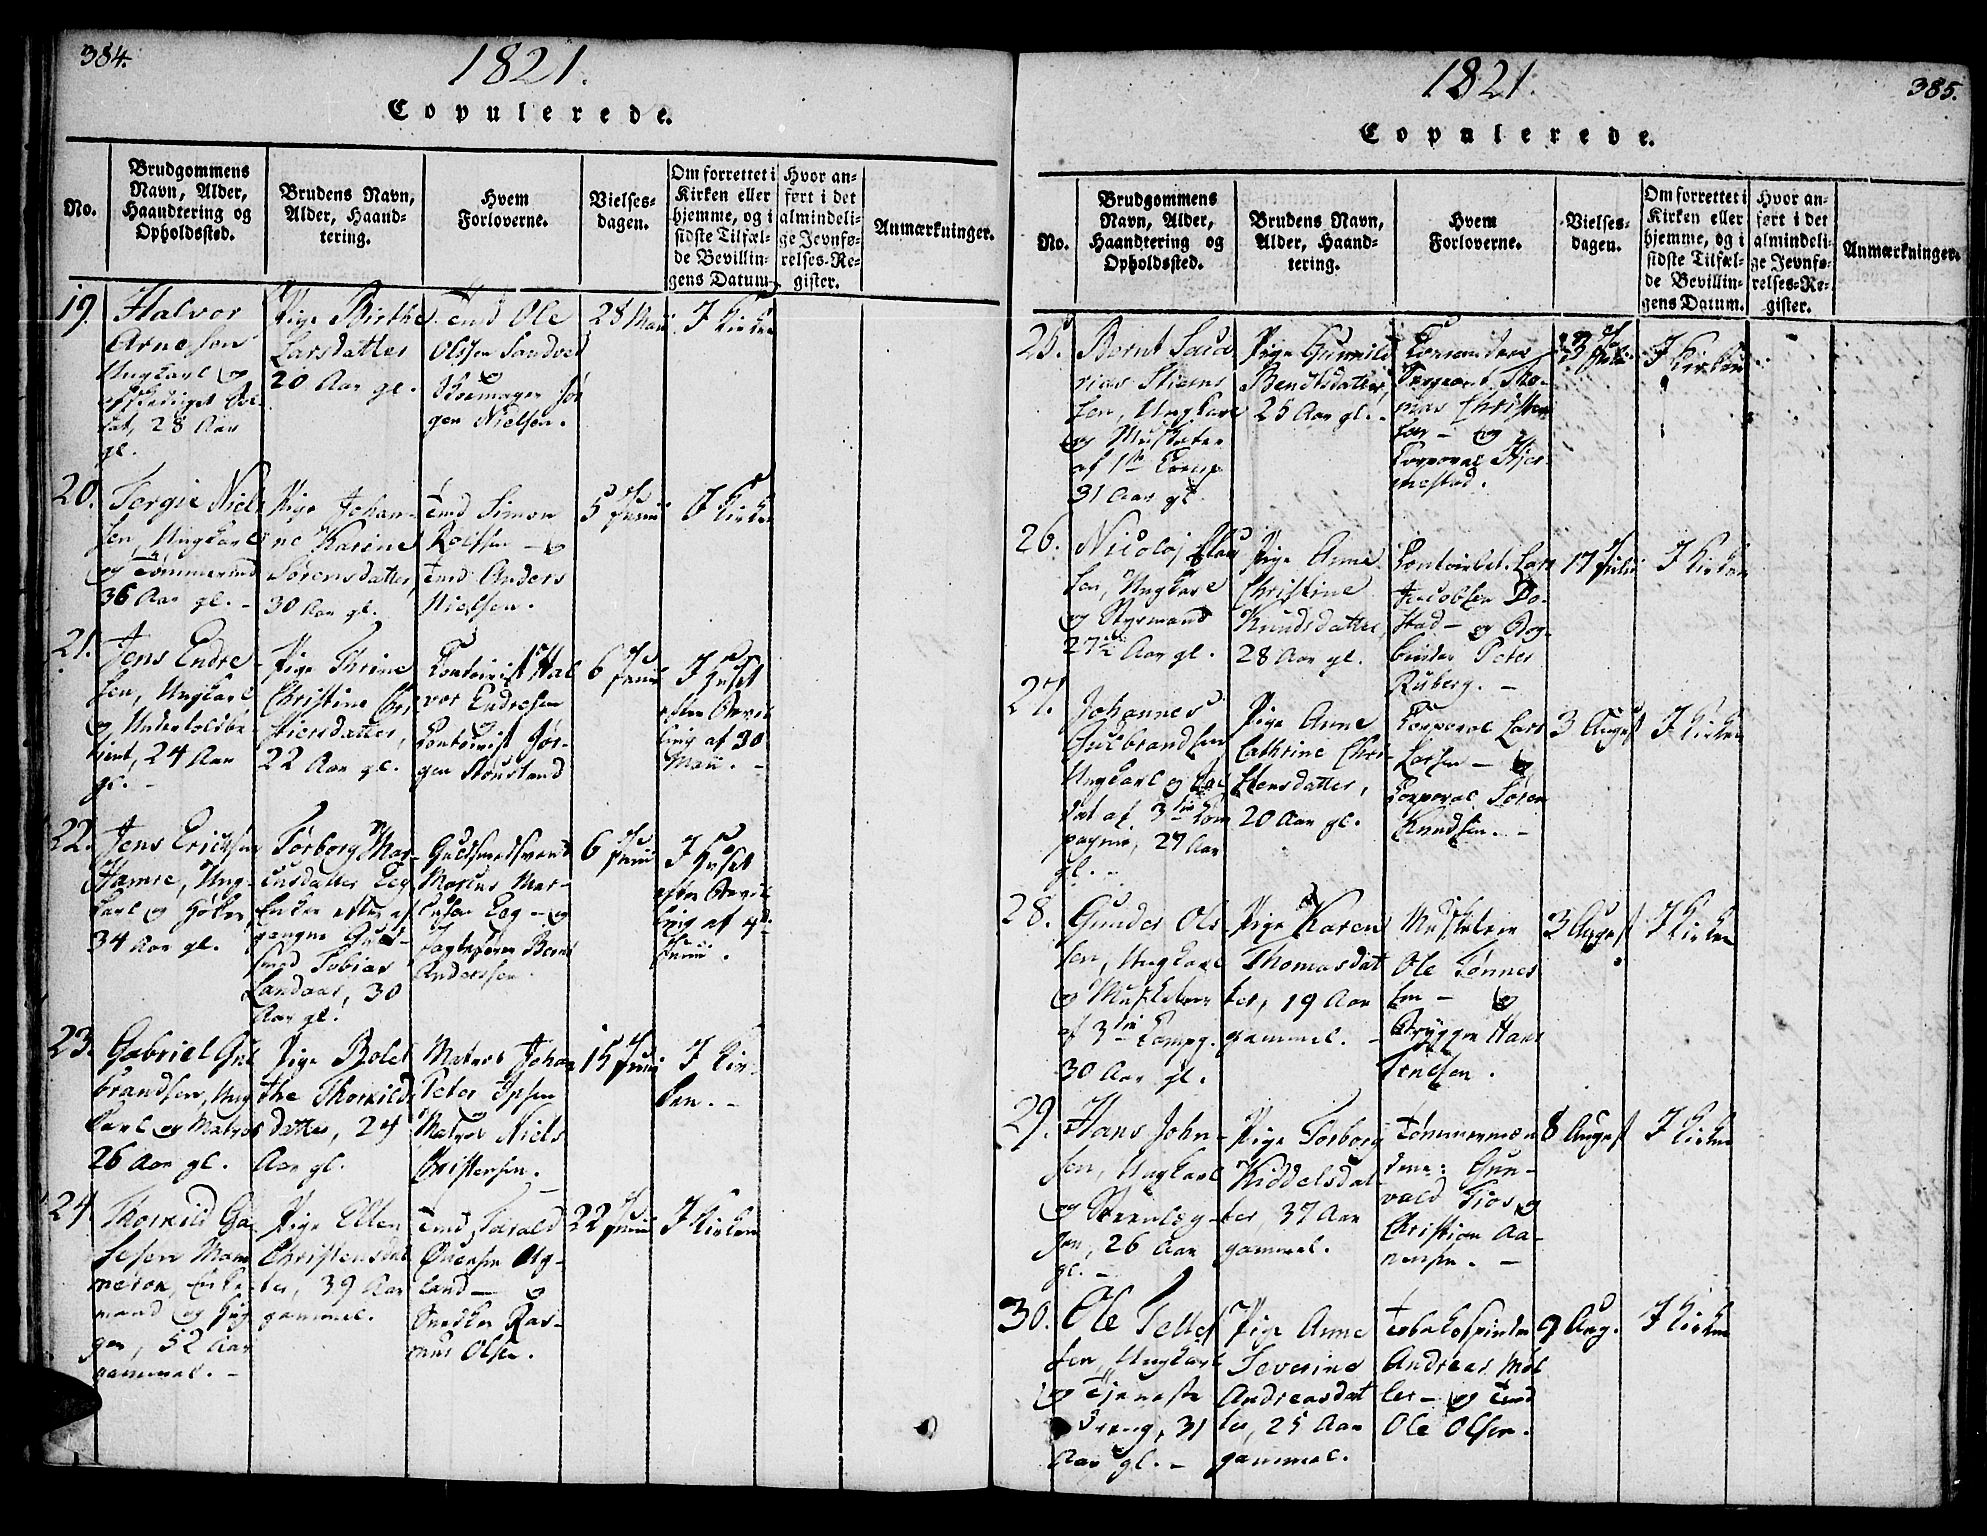 384.
1821.
Copulerede.
No.
Brudgommens
Navn, Alder,
Haandtering og
Opholdssted.
Brudens Navn,
Alder, Haand-
tering.
Hvem
Forloverne.
Vielses-
dagen.
Om forrettet i
Kirken eller
hjemme, og i
sidste Tilfæl-
de Bevillin-
gens Datum.
Hvor an-
ført i det
almindeli-
ge Jevnfø-
relses-Re-
gister.
Anmærkninger.
19.
Halvor
Arnesen
Ungkarl og
Sol-
dat, 28 Aar
gl.
Pige Birthe
Larsdatter
20 Aar gl.
Tmd Ole
Olssen Sandved
og
Jør-
gen Nielsen.
28 Maii
I Kirken
20.
Torgie Niel-
sen, Ungkarl
og Tømmermd
36 Aar gl. -
Pige Johan-
ne Karine
Sørensdatter,
30 Aar gl.
Tmd Simon
Rolfsen - og
Tmd Anders
Nielsen.
5 Junii
I Kirken
21.
Jens Endre-
sen, Ungkarl
og
24 Aar
gl. -
Pige Thrine
Christine Chri-
stiensdatter,
22 Aar gl.
Contoirist Hal-
vor Endresen
og
Contoirist Jør-
gen
6 Junii
I Huset
efter Bevil-
ling af 30
Maii. -
22.
Jens Ericksen
Hamre, Ung-
karl og Høker
34 Aar gl.
Torborg Mar-
cusdatter Eeg
Enke efter af-
gangne Guld-
smed Tobias
Landaas, 30
Aar gl.
Guldsmedsvend
Marcus Mar-
cusen Eeg - og
Bernt
Anderssen.
6 Junii
I Huset
efter Bevil-
ling af 4de
Junii.
23.
Gabriel Gul-
brandsen, Ung-
karl og Matros
26 Aar gl.
Pige Bolet-
the Thorkilds-
datter, 24
Aar gl.
Matros Johan
Peter Ipsen
Matros Niels
Christensen.
15 Junii
I Kir-
ken. -
24.
Thorkild Ga-
Enke-
mand og
52 Aar
gammel. -
Pige Ellen
Christensdat-
ter, 39 Aar
gammel.
Tmd Tarald
Ovensen Ug-
land - og
Snedker Ras-
mus Olsen.
22 Junii
I Kirken
385.
1821.
Copulerede.
No.
Brudgommens
Navn, Alder,
Haandtering og
Opholdssted.
Brudens Navn,
Alder, Haand-
tering.
Hvem
Forloverne.
Vielses-
dagen.
Om forrettet i
Kirken eller
hjemme, og i
sidste Tilfæl-
de Bevillin-
gens Datum.
Hvor an-
ført i det
almindeli-
ge Jevnfø-
relses-Re-
gister.
Anmærkninger.
25.
Bernt Saca-
rias
sen, Ungkarl
og Musketeer
af 1ste Comp.
31 Aar gl.
Pige Gunnild
Bendtsdatter,
25 Aar gl. -
Sergeant Tho-
mas Christen-
sen - og
Corporal
Juli
I Kirken
26.
Nicolaj Clau-
sen, Ungkarl
og Styrmand
27 1/2 Aar gl.
Pige Anne
Christine
Knudsdatter,
28 Aar gl.
Lars
Jacobsen Do-
stad - og Bog-
binder Peter
Ruberg. -
17 Julii
I Kirken
27.
Johannes
Gulbrandsen
Ungkarl og Sol-
dat af 3die Com-
pagnie, 27 Aar
gl. -
Pige Anne
Cathrine Chri-
stensdatter,
20 Aar gl.
Corporal Lars
Larsen - og
Corporal Søren
Knudsen. -
3 August
I Kirken
28.
Gunder Ols-
sen, Ungkarl
og Musketeer
af 3die Compg.
30 Aar gl.
Pige Karen
Thomasdat-
ter, 19 Aar
gammel.
Musketeer
Ole Tønnes-
sen - og
Brygger Hans
3 August
I Kirken
29.
Hans John-
sen, Ungkarl
og
26 Aar
gl. -
Pige Torborg
Kiddelsdat-
ter, 37 Aar
gammel.
Tømmermæn-
dene: Gun-
vald Tios og
Christian Aa-
nensen. -
8 August
I Kirken
30.
Ole Tellef-
sen, Ungkarl
og Tjeneste-
dreng, 31
Aar gl. -
Pige Anne
Severine
Andreasdat-
ter, 25 Aar
gammel.
Tobakspinder
Andreas Møl-
ler - og Tmd
Ole Olsen.
9 Aug.
I Kirken